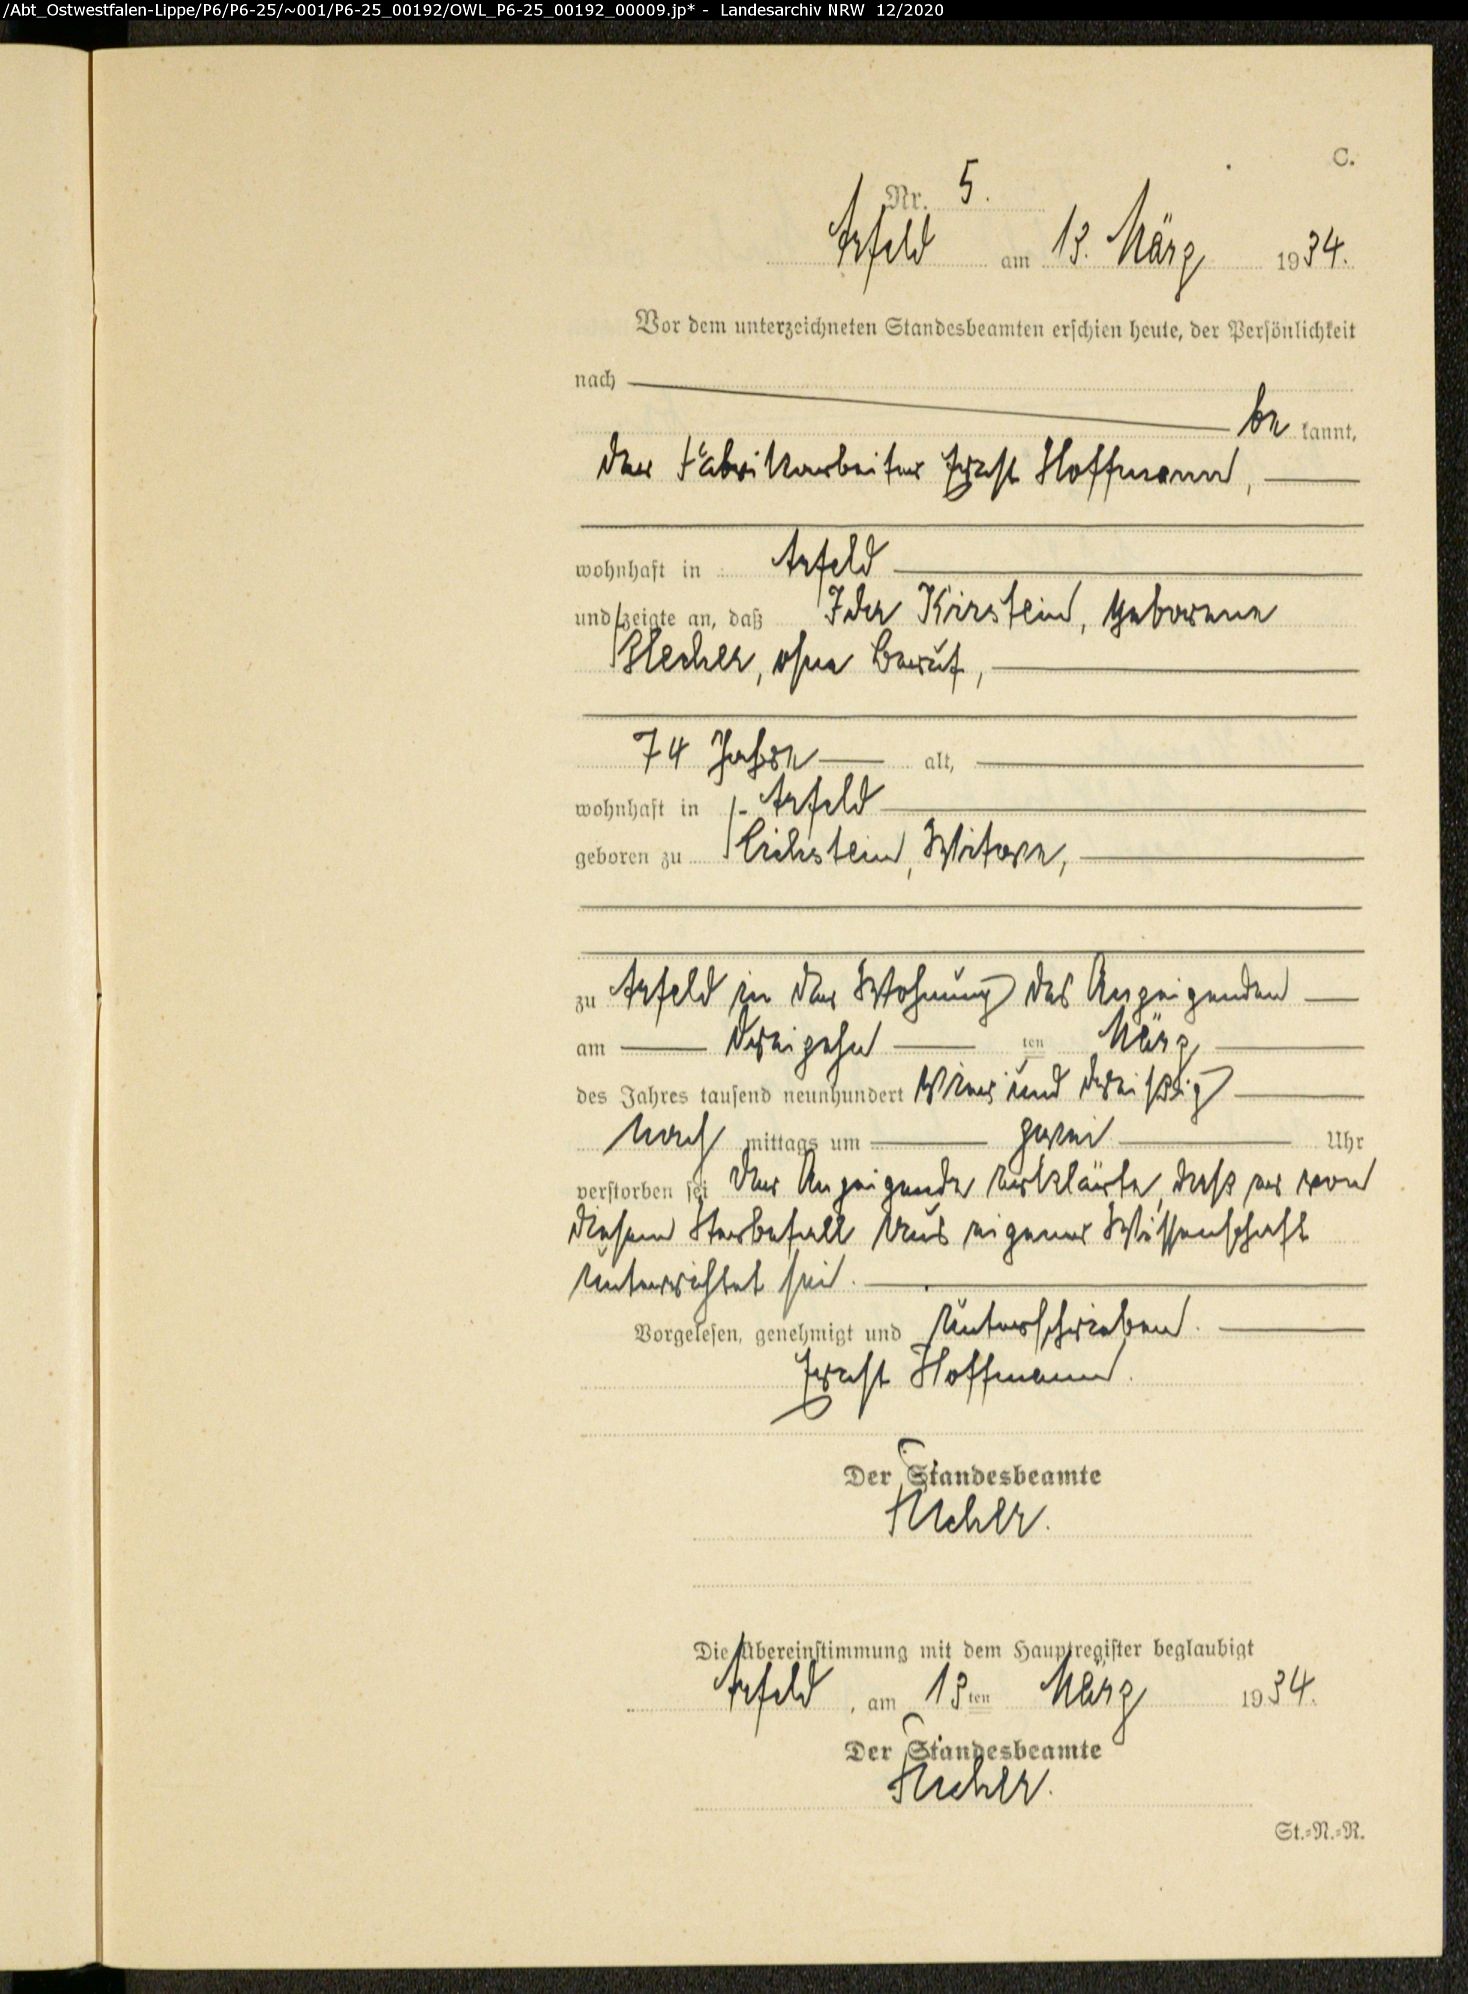 /Abt_Ostwestfalen-Lippe/P6/P6-25/~001/P6-25_00192/OWL_P6-25_00192_00009.jp* - Landesarchiv NRW 12/2020
C.
Nr. 5.
Arfeld am 13. März 1934.
Vor dem unterzeichneten Standesbeamten erschien heute, der Persönlichkeit
nach
be kannt,
der Fabrikarbeiter Ernst Hoffmann,
wohnhaft in Arfeld
und zeigte an, daß Ida Kirstein, geborene
Blecher, ohne Beruf,
74 Jahre alt,
wohnhaft in Arfeld
geboren zu Witwe,
zu Arfeld in der Wohnung des Anzeigenden
am dreizehn ten März
des Jahres tausend neunhundert vier und dreißig
Nach mittags um zwei Uhr
verstorben sei der Anzeigende erklärte, daß er von
diesem Sterbefall aus eigener Wissenschaft
unterrichtet sei.
Vorgelesen, genehmigt und unterschrieben.
Ernst Hoffmann.
Der Standesbeamte
Die Übereinstimmung mit dem Hauptregister beglaubigt
Arfeld, am 13ten März 1934.
Der Standesbeamte
St.=N.=R.